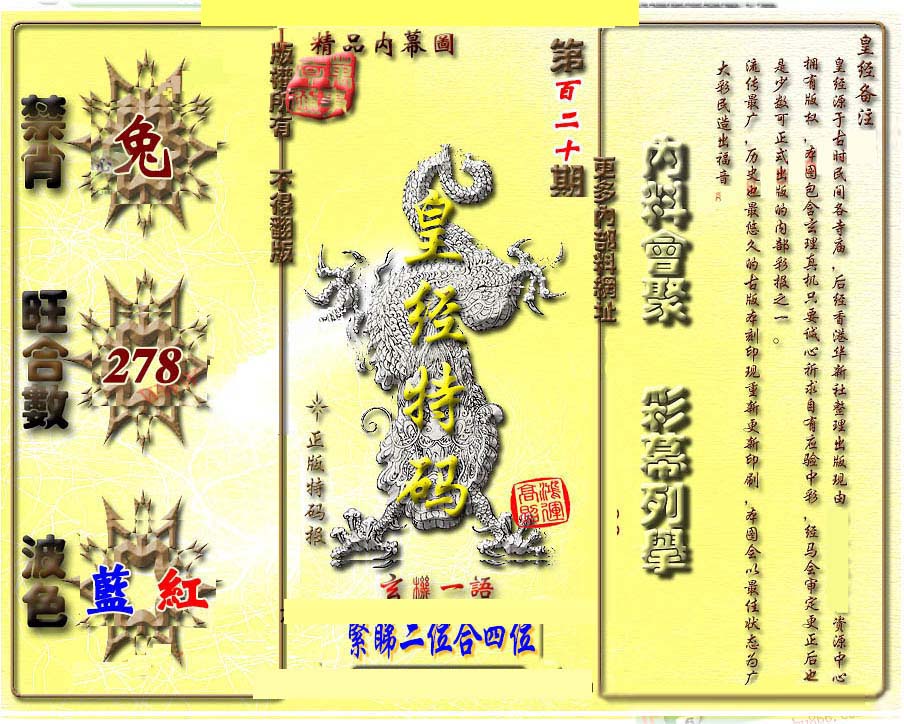 精品内幕圖
第百二十期
版權所有 不得翻版
皇经特码
正版特码报
鴻運高照
玄機一語
緊睇二位合四位
禁肖
兔
旺合數
278
波色
藍 紅
更多内部料網址
内料會聚
彩幕列舉
皇经备注
皇经源于古时民间各寺庙，后经香港华新社整理出版现由 资源中心
拥有版权，本图包含玄理真机只要诚心祈求自有应验中彩，经马会审定更正后也
是少数可正式出版的内部彩报之一。
流传最广，历史也最悠久的古版本刻印现重新更新印刷，本图会以最佳状态为广
大彩民造出福音